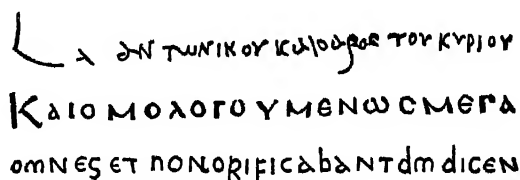 L λ αντωνικου καισαρος του κυριου
ΚΑΙΟΜΟΛΟΓΟΥΜΕΝΩϹΜΕΓΑ
omNES ET hONORIFICAbANTdmdICEN